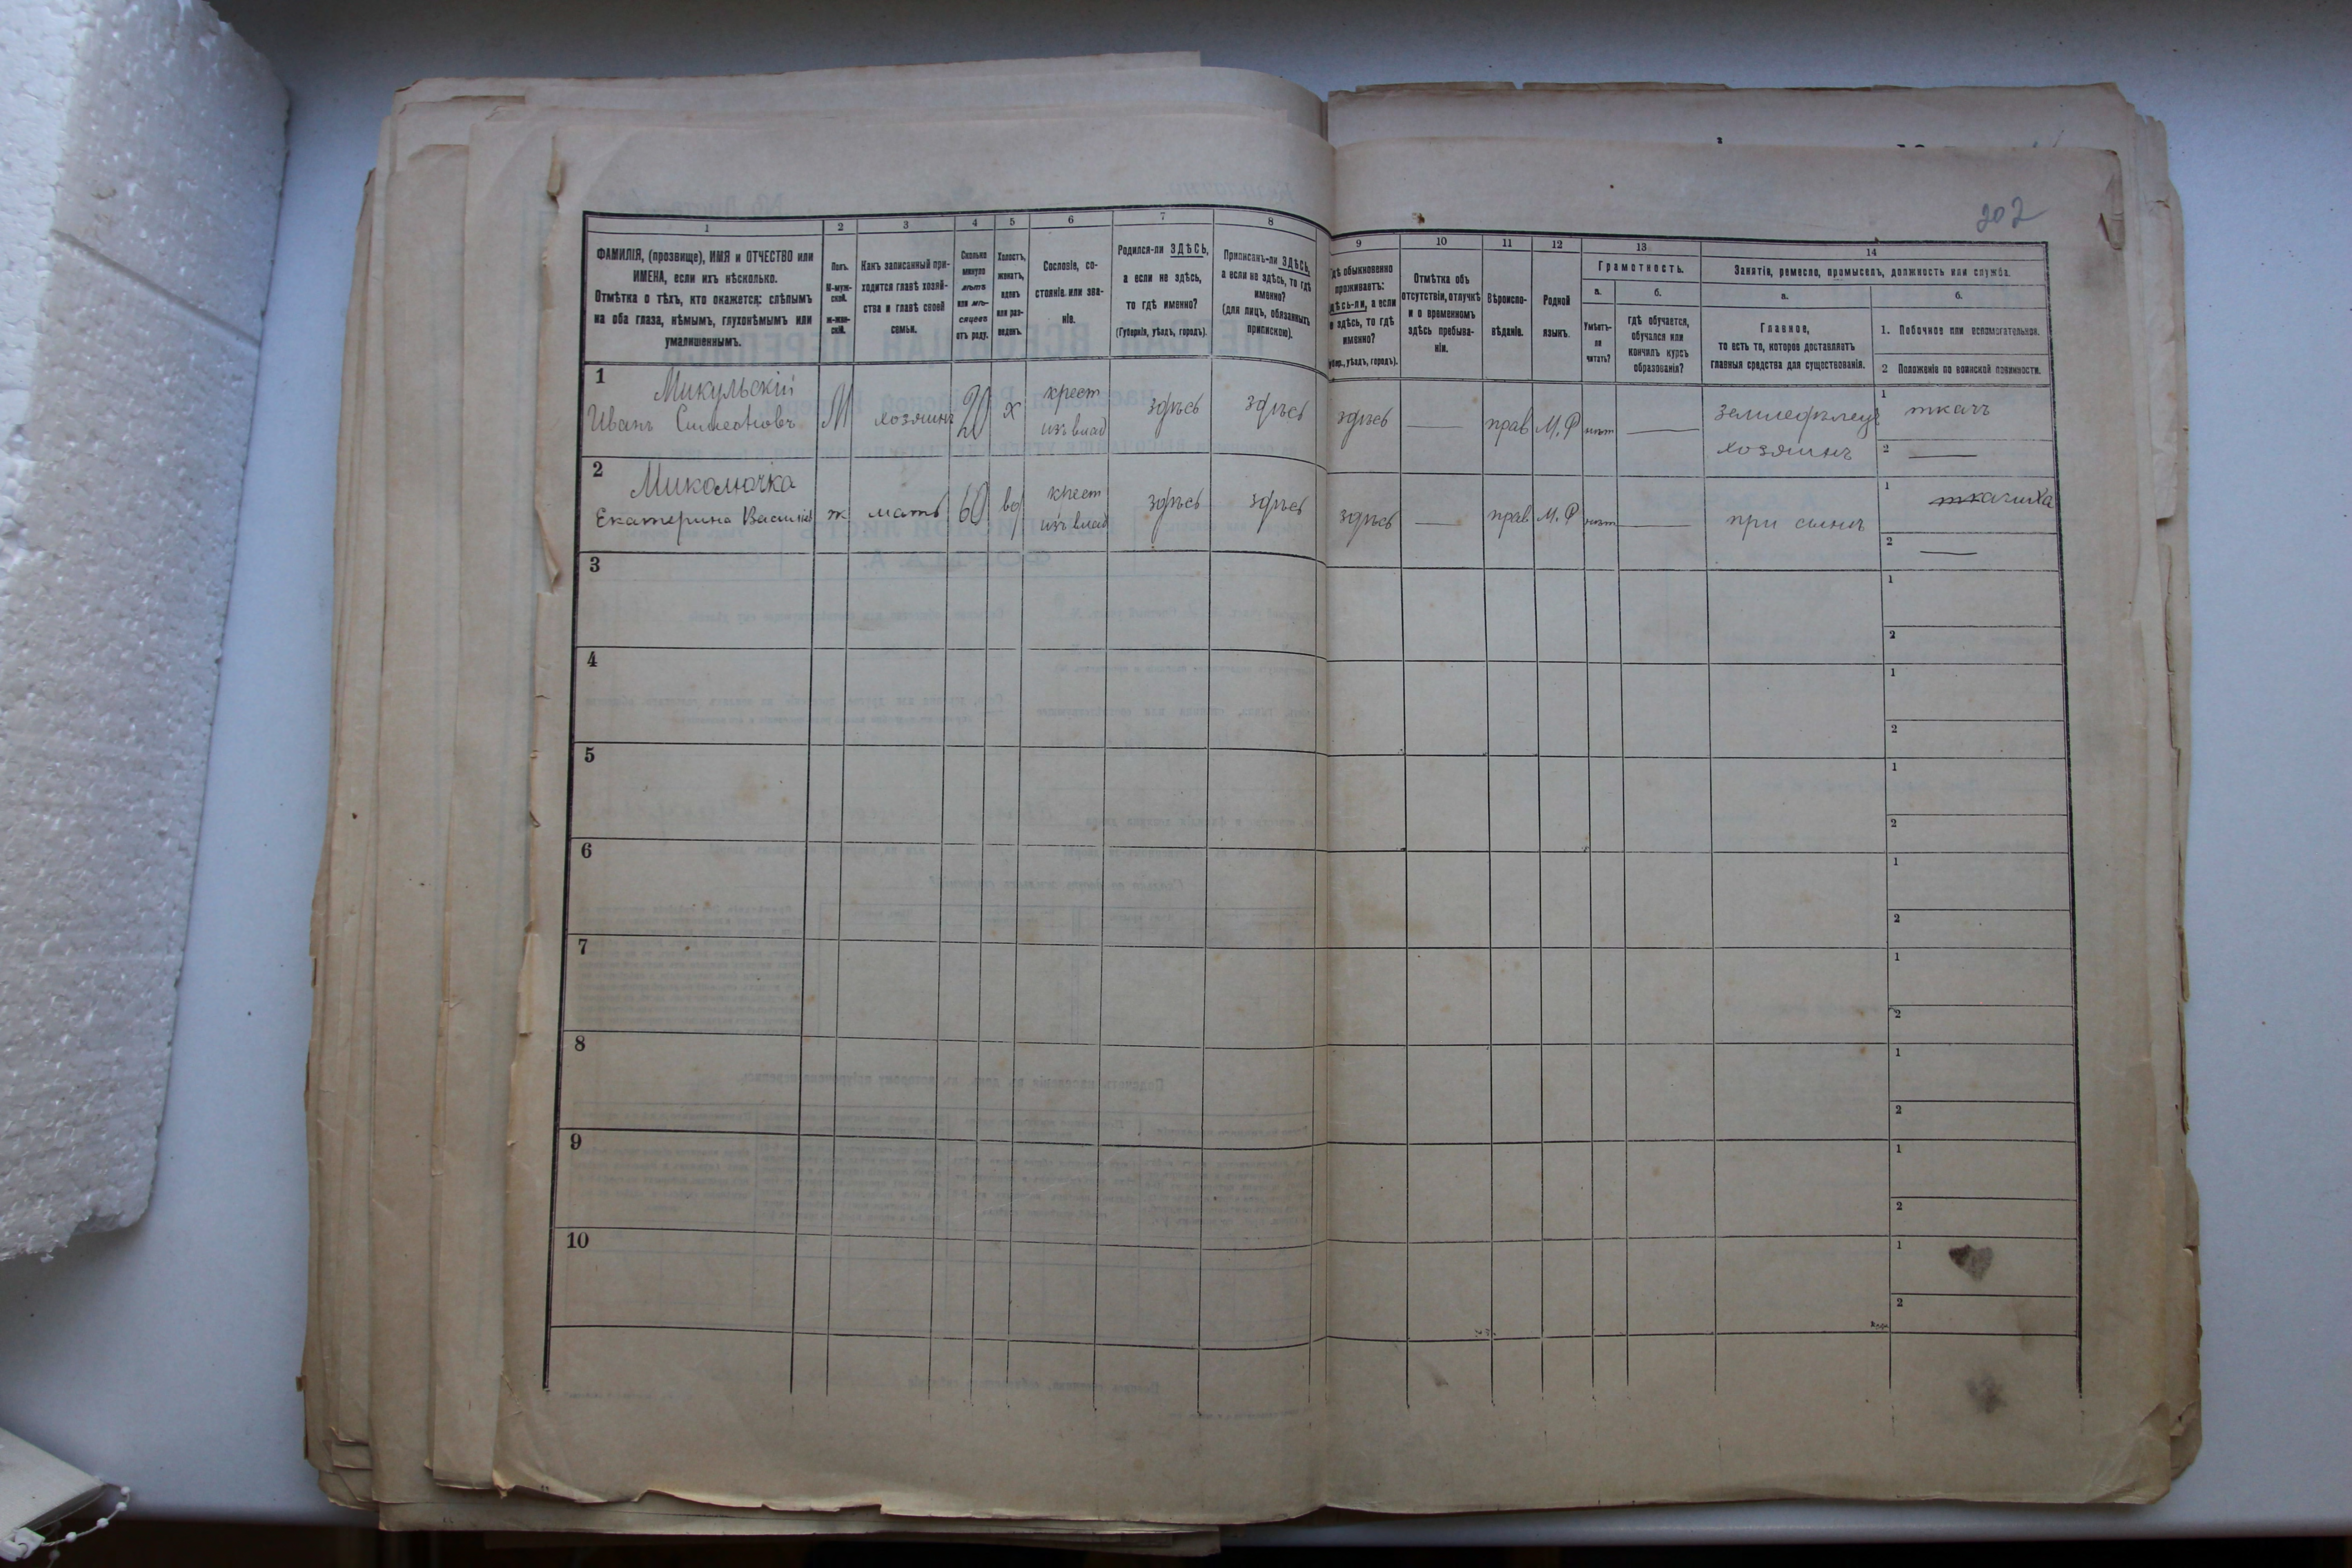 202
1
2
3
4
5
6
7
8
9
10
11
12
13
14
ФАМИЛІЯ, (прозвище), ИМЯ и ОТЧЕСТВО или
ИМЕНА, если ихъ нѣсколько.
Отмѣтка о тѣхъ, кто окажется: слѣпымъ
на оба глаза, нѣмымъ, глухонѣмымъ или
умалишеннымъ.
Полъ.
М-муж-
ской.
ж-жен-
скій.
Какъ записанный при-
ходится главѣ хозяй-
ства и главѣ своей
семьи.
Сколько
минуло
лѣтъ
или мѣ-
сяцевъ
отъ роду.
Холостъ,
женатъ,
вдовъ
или раз-
веденъ.
Сословіе, со-
стояніе или зва-
ніе.
Родился-ли ЗДѢСЬ,
а если не здѣсь,
то гдѣ именно?
(Губернія, уѣздъ, городъ).
Приписанъ-ли ЗДѢСЬ,
а если не здѣсь, то гдѣ
именно?
(для лицъ, обязанныхъ
припискою).
Гдѣ обыкновенно
проживаетъ:
здѣсь-ли, а если
не здѣсь, то гдѣ
именно?
(Губер., уѣздъ, городъ).
Отмѣтка объ
отсутствіи, отлучкѣ
и о временномъ
здѣсь пребыва-
ніи.
Вѣроиспо-
вѣданіе.
Родной
языкъ.
Грамотность.
а.
Умѣетъ-
ли
читать?
б.
гдѣ обучается,
обучался или
кончилъ курсъ
образованія?
Занятіе, ремесло, промыселъ, должность или служба.
а.
Главное,
то есть то, которое доставляетъ
главныя средства для существованія.
б.
1. Побочное или вспомогательное.
2 Положеніе по воинской повинности.
1 Микульскій
Иванъ Симеоновъ М хозяинъ 20 х крест изъ влад здѣсь здѣсь здѣсь — прав М.Р нѣт — земледѣлецъ хозяинъ
1 ткачъ
2 —
2 Миколючка
Екатерина Василiев ж мать 60 вд крест изъ влад здѣсь здѣсь здѣсь — прав М.Р нѣт — при сынѣ
1 ткачиха
2 —
3
1
2
4
1
2
5
1
2
6
1
2
7
1
2
8
1
2
9
1
2
10
1
2